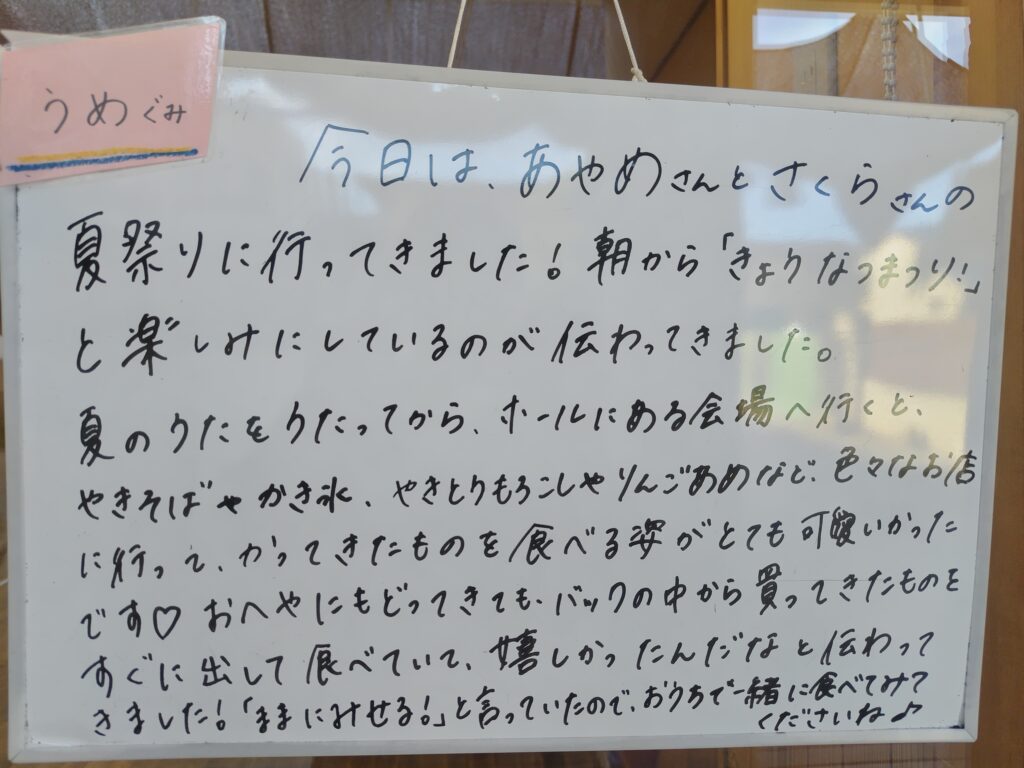 うめぐみ
今日は、あやめさんとさくらさんの
夏祭りに行ってきました！朝から「きょうなつまつり！」
と楽しみにしているのが伝わってきました。
夏のうたをうたってから、ホールにある会場へ行くと、
やきそばやかき氷、やきとうもろこしやりんごあめなど、色々なお店
に行って、かってきたものを食べる姿がとても可愛いかった
です♡おへやにもどってきても、バックの中から買ってきたものを
すぐに出して食べていて、嬉しかったんだなと伝わって
きました！「ままにみせる！」と言っていたので、おうちで一緒に食べてみて
くださいね♪